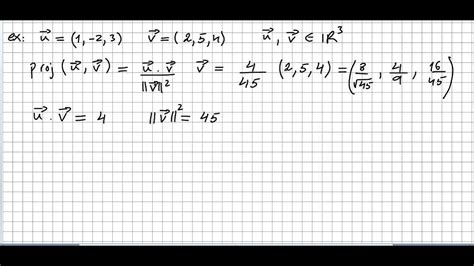 ex: u⃗ = (1, -2, 3) v⃗ = (2, 5, 4) u⃗, v⃗ ∈ IR³
proj (u⃗, v⃗) = u⃗ . v⃗ / ||v⃗||² v⃗ = 4/45 (2, 5, 4) = (8/√45, 4/9, 16/45)
u⃗ . v⃗ = 4 ||v⃗||² = 45